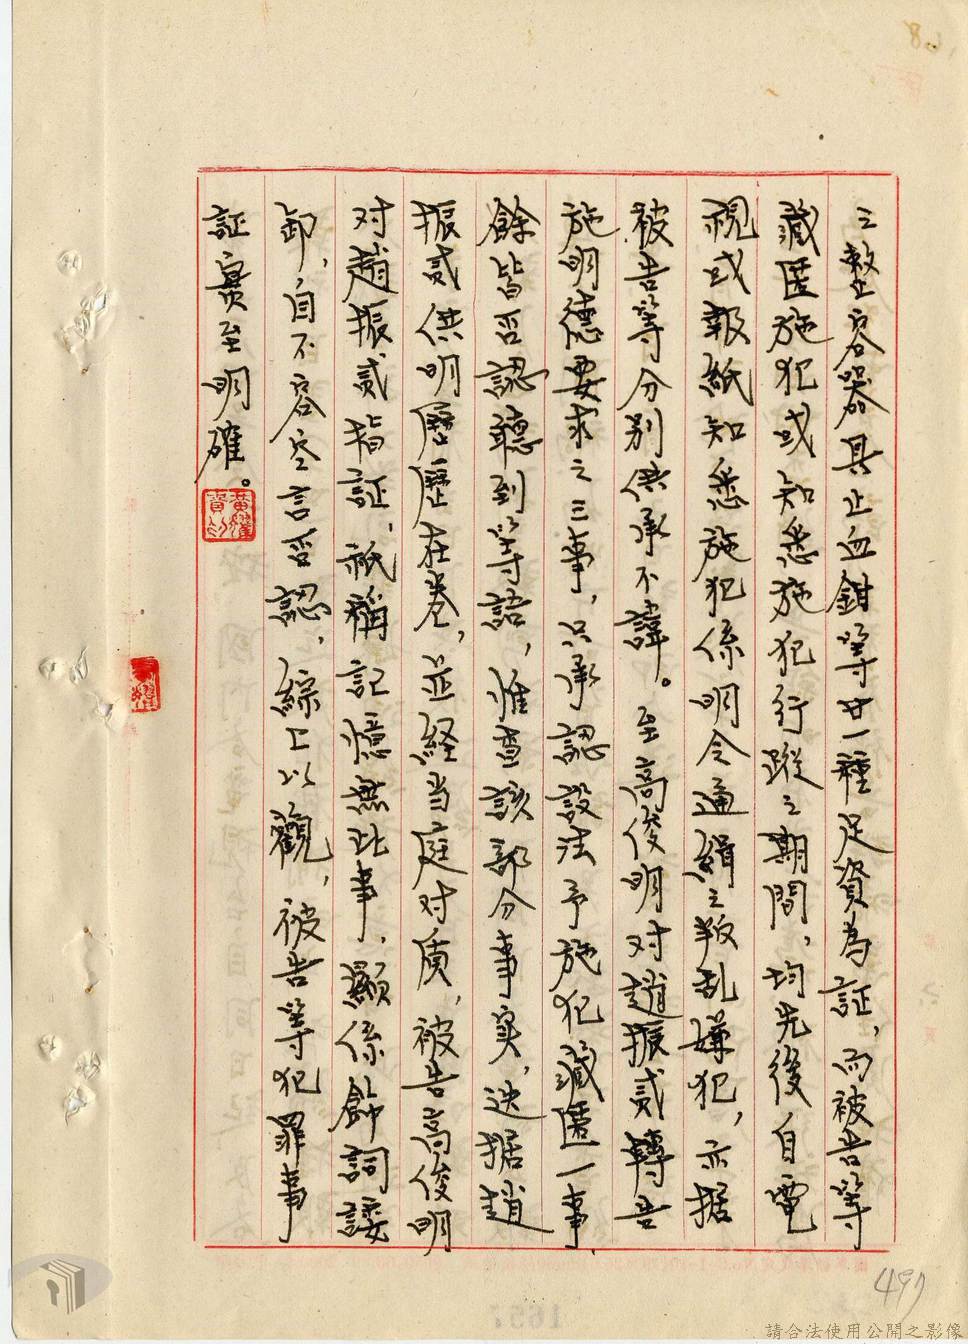 之整容器具止血鉗等廿一種足資為証，而被告等
藏匿施犯或知悉施犯行蹤之期間，均先後自電
視或報紙知悉施犯係明令通緝之叛乱嫌犯，亦据
被告等分別供承不諱。至高俊明对趙振貳轉告
施明德要求之三事，只承認設法予施犯藏匿一事，
餘皆否認聽到等語，惟查該部分事実，迭据趙
振貳供明歷歷在卷，並経当庭对质，被告高俊明
对趙振貳指証，祇稱記憶無此事，顯係飾詞諉
卸，自不容空言否認，綜上以觀，被告等犯罪事
証實至明確。
497
請合法使用公開之影像